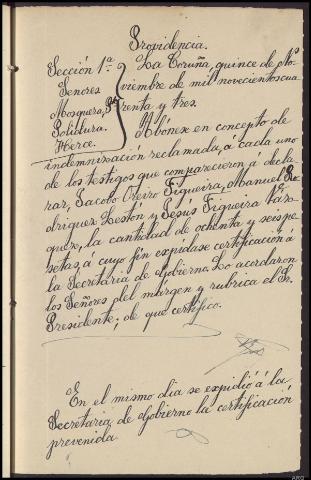 Providencia.
Sección 1ª.
Señores
Mosquera, Pte
Polidura.
Herce.
La Coruña, quince de No-
viembre de mil novecientos cua
renta y tres.
Abónese en concepto de
indemnización reclamada, á cada uno
de los testigos que comparecieron á decla-
rar, Jacobo Otero Figueira, Manuel Ro-
driguez Leston y Jesús Figueira Váz-
quez, la cantidad de ochenta y seis pe-
setas, á cuyo fin expidase certificación á
la Secretaria de Gobierno. Lo acordaron
los Señores del márgen y rubrica el Sr.
Presidente; de que certifico.
En el mismo dia se expidió á la
Secretaria de Gobierno la certificación
prevenida
ARG